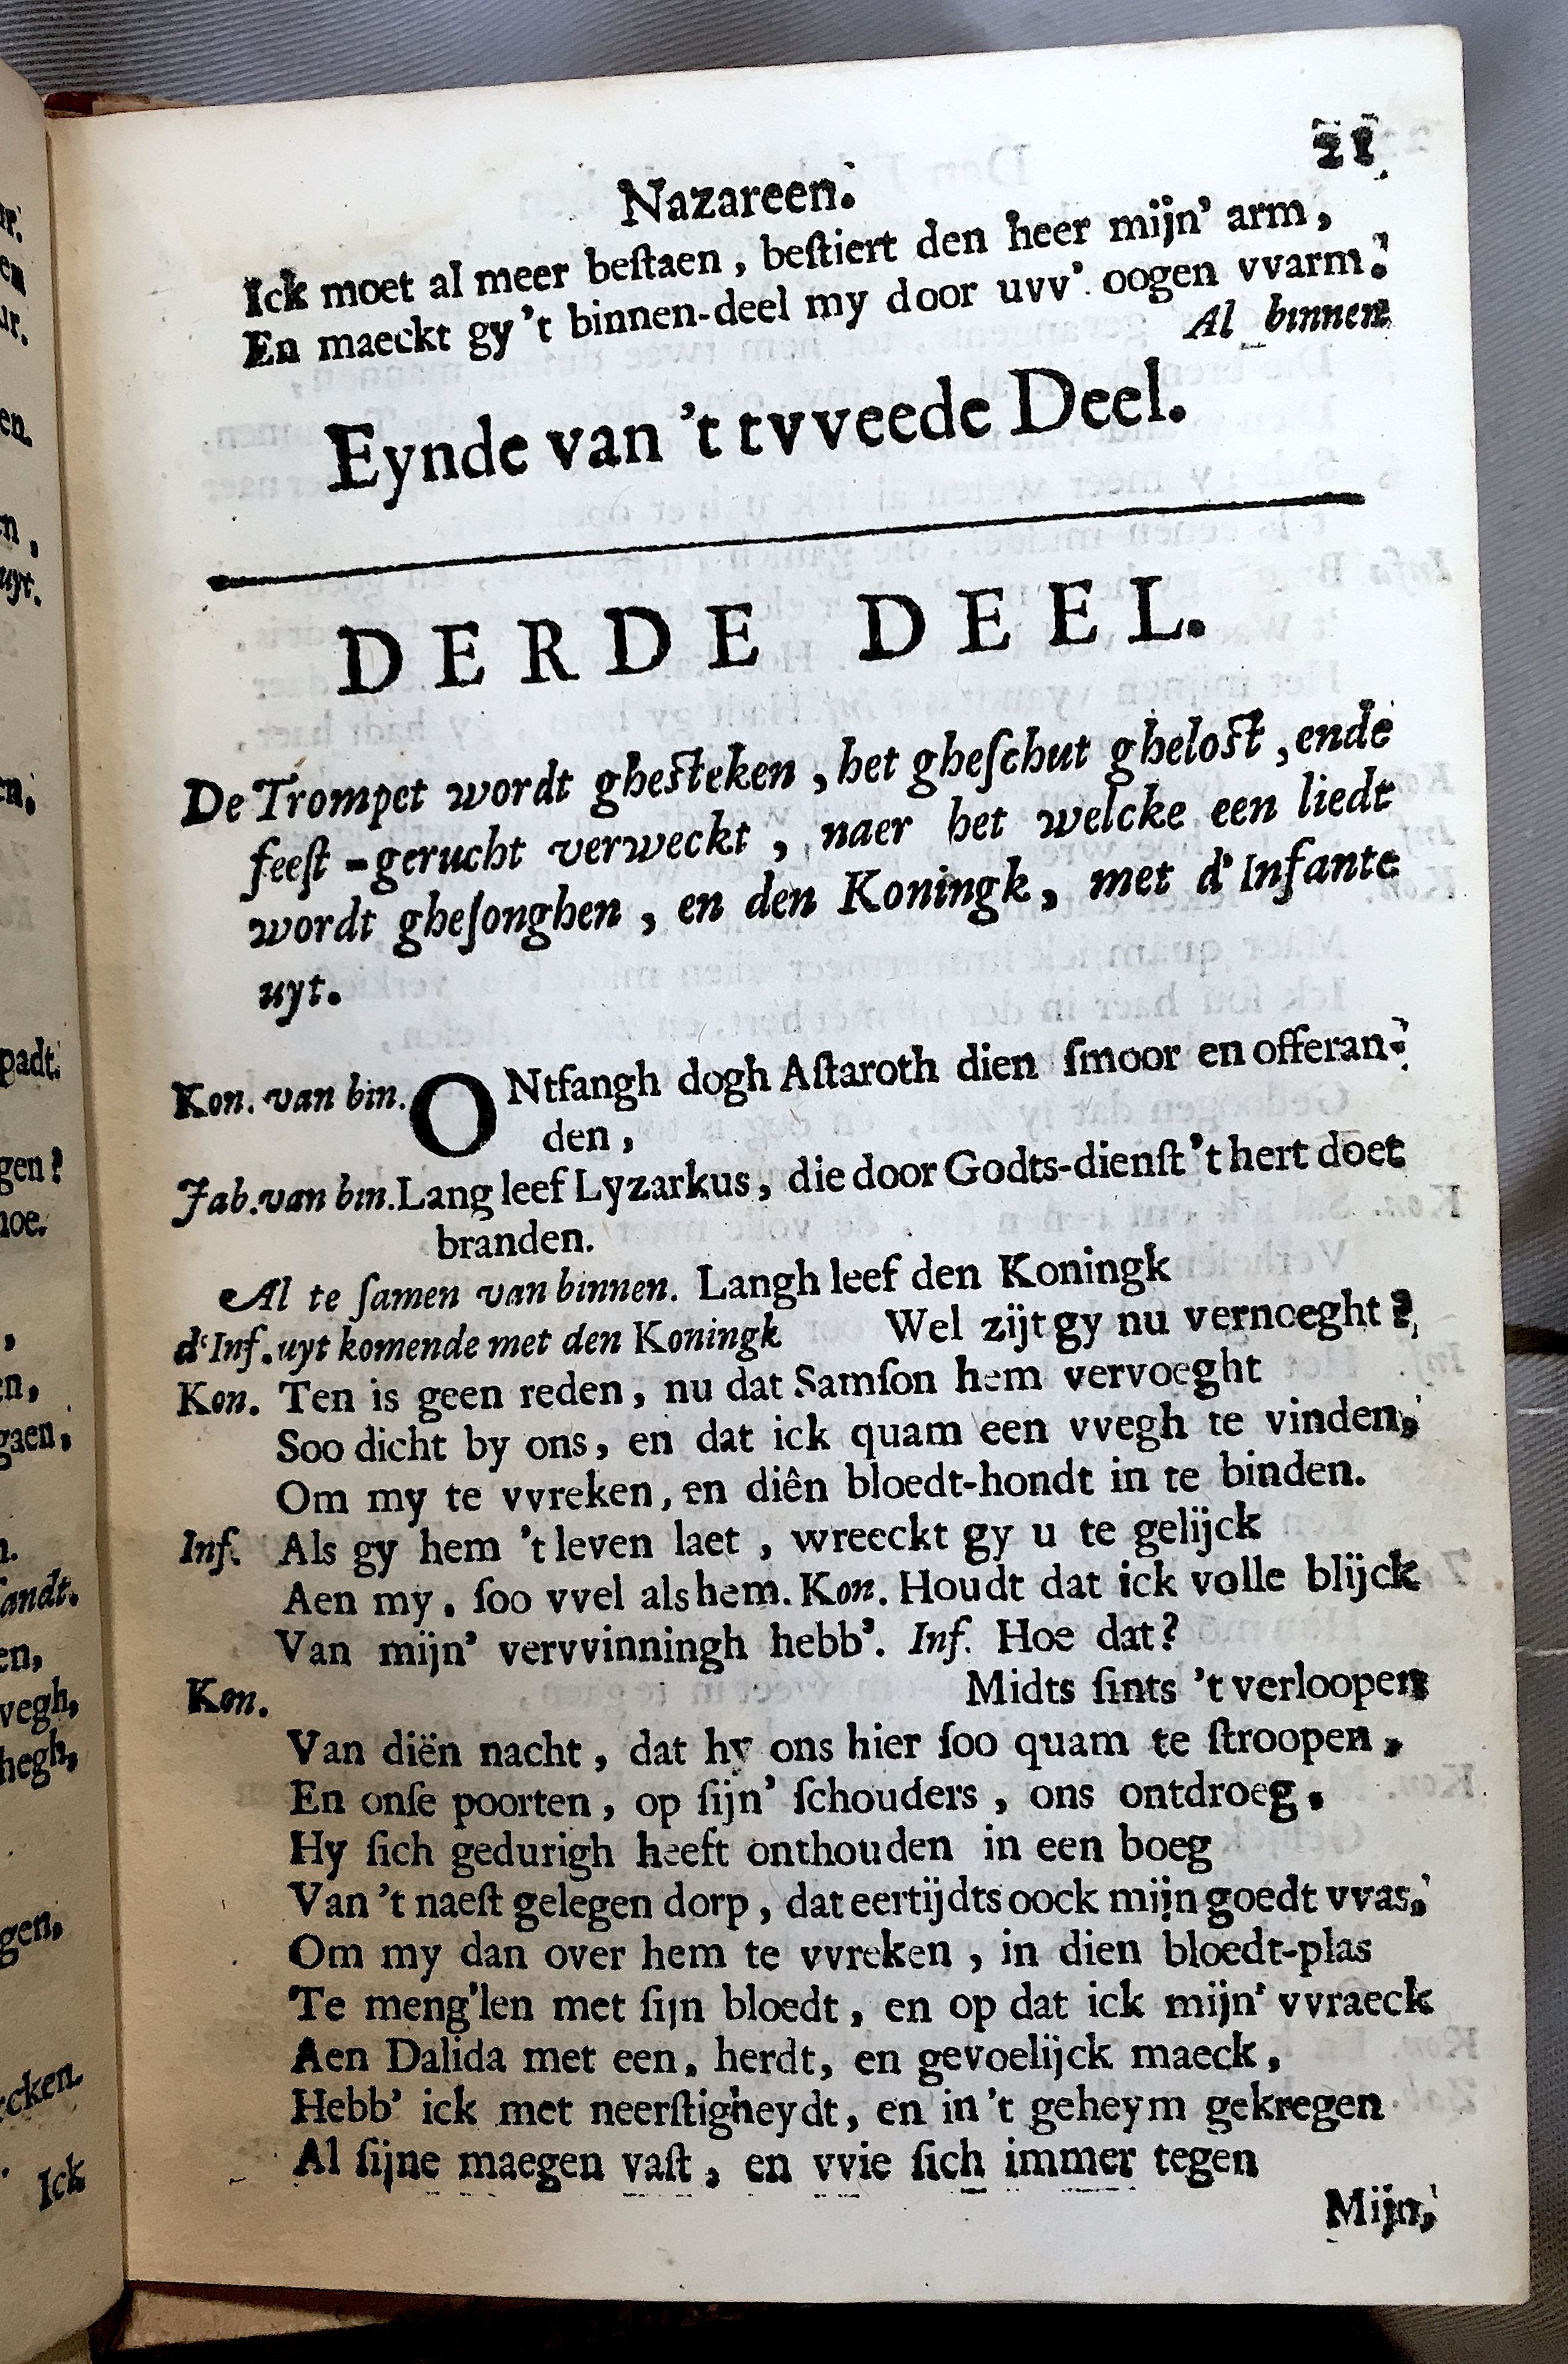 21
Nazareen.
Ick moet al meer beſtaen, beſtiert den heer mijn' arm,
En maeckt gy 't binnen-deel my door uvv' oogen vvarm.
Al binnen
Eynde van 't tvveede Deel.
DERDE DEEL.
De Trompet wordt gheſteken, het gheſchut gheloſt, ende
feeſt-gerucht verweckt, naer het welcke een liedt
wordt gheſonghen, en den Koningk, met d'Infante
uyt.
Kon. van bin. ONtfangh dogh Aſtaroth dien ſmoor en offeran-
den,
Jab. van bin. Lang leef Lyzarkus, die door Godts-dienſt 't hert doet
branden.
Al te ſamen van binnen. Langh leef den Koningk
d'Inf. uyt komende met den Koningk Wel zijt gy nu vernoeght?
Kon. Ten is geen reden, nu dat Samſon hem vervoeght
Soo dicht by ons, en dat ick quam een vvegh te vinden,
Om my te vvreken, en diên bloedt-hondt in te binden.
Inf. Als gy hem 't leven laet, wreeckt gy u te gelijck
Aen my. ſoo vvel als hem. Kon. Houdt dat ick volle blijck
Van mijn' vervvinningh hebb'. Inf. Hoe dat?
Kon. Midts ſints 't verloopen
Van diën nacht, dat hy ons hier ſoo quam te ſtroopen,
En onſe poorten, op ſijn' ſchouders, ons ontdroeg.
Hy ſich gedurigh heeft onthouden in een boeg
Van 't naeſt gelegen dorp, dat eertijdts oock mijn goedt vvas.
Om my dan over hem te vvreken, in dien bloedt-plas
Te meng'len met ſijn bloedt, en op dat ick mijn' vvraeck
Aen Dalida met een, herdt, en gevoelijck maeck,
Hebb' ick met neerſtigheydt, en in 't geheym gekregen
Al ſijne maegen vaſt, en vvie ſich immer tegen
Mijn,
n,
uyt.
padt.
gen?
hoe.
gaen,
andt.
en,
vegh,
hegh,
gen.
cken.
Ick